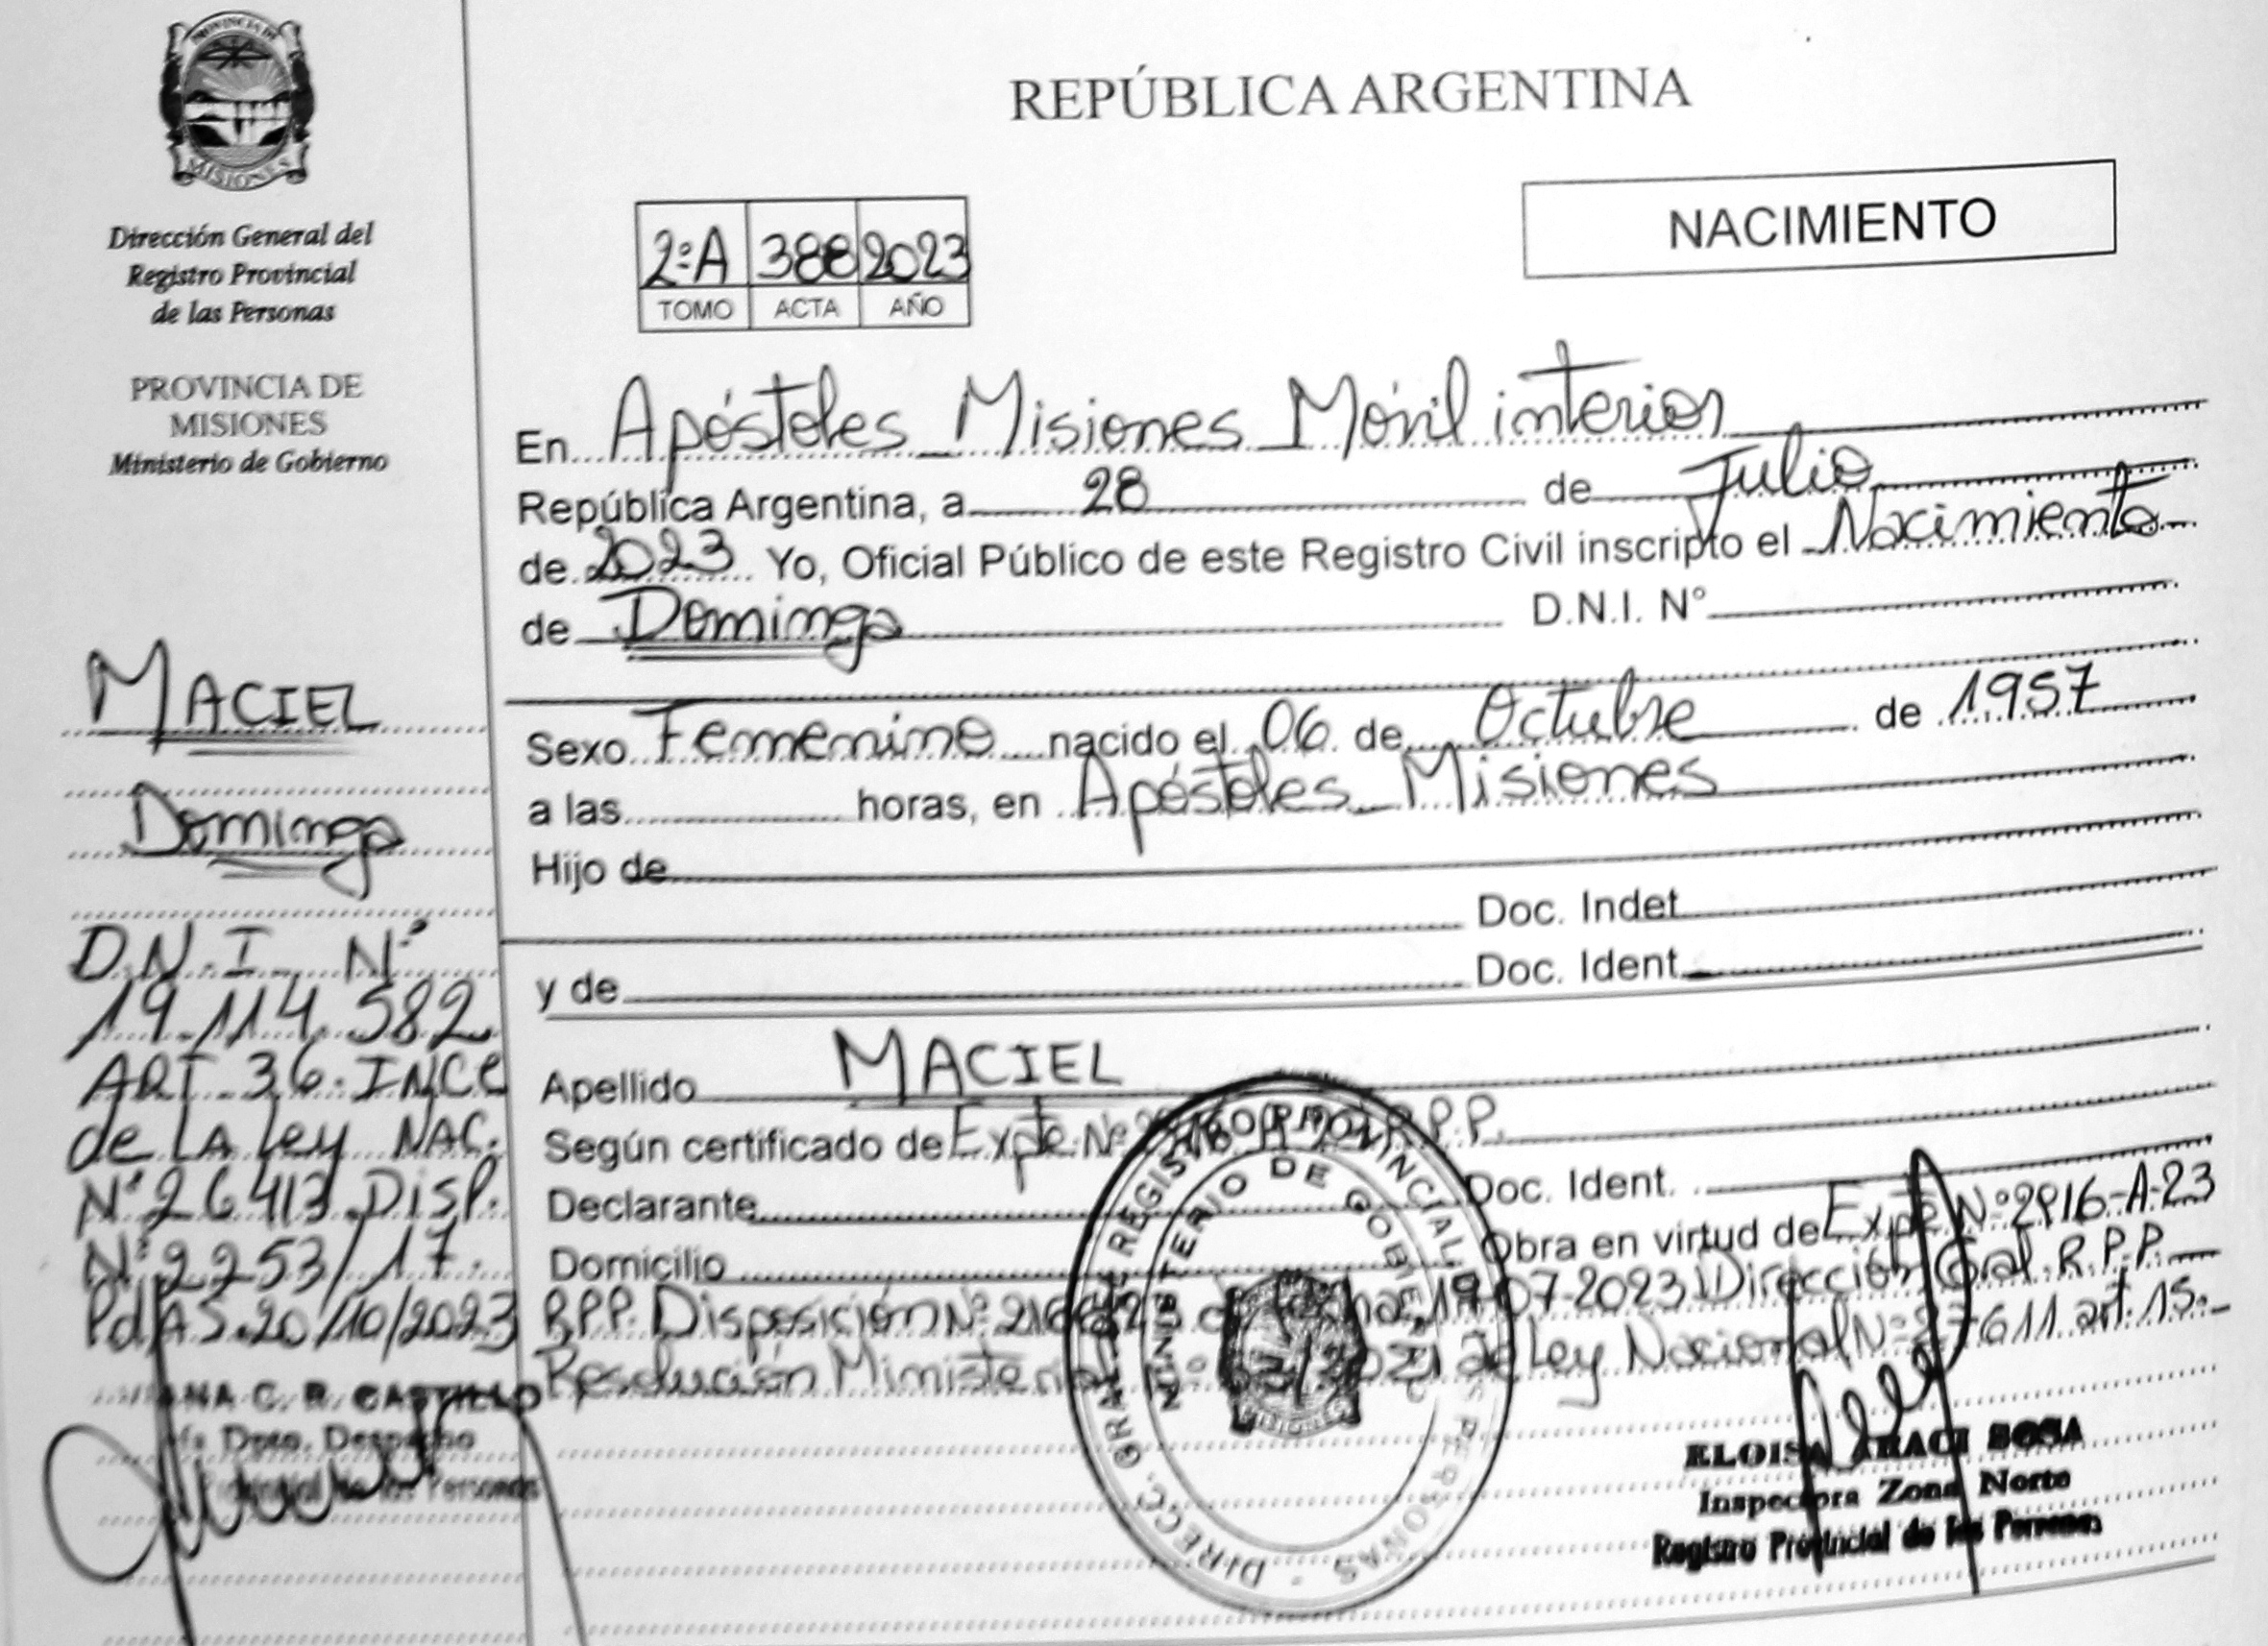 PROVINCIA DE
MISIONES
Dirección General del
Registro Provincial
de las Personas
PROVINCIA DE
MISIONES
Ministerio de Gobierno
MACIEL
Dominga
D.N.I. Nº
19.114.582
ART. 36. INC C
de LA Ley NAC.
Nº 26413. Disp.
Nº 2253/17.
PdAS. 20/10/2023
C. R. CASTILLO
Dpto. Despacho
Provincial de las Personas
REPÚBLICA ARGENTINA
NACIMIENTO
2ºA 388 2023
TOMO ACTA AÑO
En Apóstoles Misiones Móvil interior
República Argentina, a 28 de Julio
de 2023 Yo, Oficial Público de este Registro Civil inscripto el Nacimiento
de Dominga D.N.I. N°
Sexo Femenino nacido el 06 de Octubre de 1957
a las horas, en Apóstoles Misiones
Hijo de
Doc. Indet
y de Doc. Ident.
Apellido MACIEL
Según certificado de Expte. Nº R.P.P.
Declarante Doc. Ident.
Domicilio Obra en virtud de Expte Nº 2916-A-23
R.P.P. Disposición Nº 19-07-2023 Dirección Gral. R.P.P.
Resolución Ley Nacional Nº 27611 art. 15.
DIRECC. GRAL. DE REGISTRO PROVINCIAL DE LAS PERSONAS
MINISTERIO DE GOBIERNO
ELOISA ARACI SOSA
Inspectora Zona Norte
Registro Provincial de las Personas